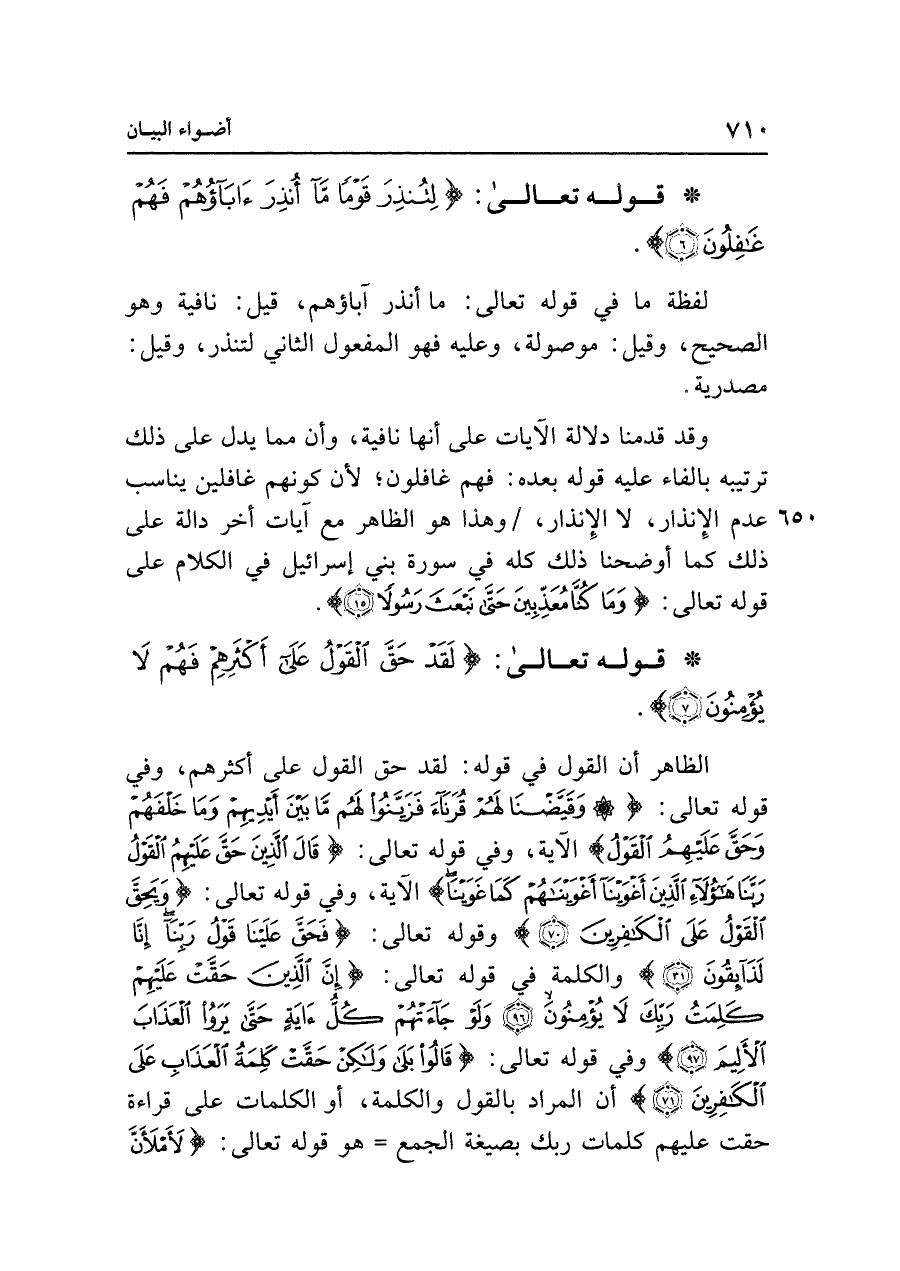 ٧١٠ أضواء البيان
* قوله تعالىٰ: ﴿لِتُنذِرَ قَوْمًا مَّآ أُنذِرَ ءَابَآؤُهُمْ فَهُمْ
غَٰفِلُونَ ٦﴾.
لفظة ما في قوله تعالى: ما أنذر آباؤهم، قيل: نافية وهو
الصحيح، وقيل: موصولة، وعليه فهو المفعول الثاني لتنذر، وقيل:
مصدرية.
وقد قدمنا دلالة الآيات على أنها نافية، وأن مما يدل على ذلك
ترتيبه بالفاء عليه قوله بعده: فهم غافلون؛ لأن كونهم غافلين يناسب
عدم الإنذار، لا الإنذار، / وهذا هو الظاهر مع آيات أخر دالة على ٦٥٠
ذلك كما أوضحنا ذلك كله في سورة بني إسرائيل في الكلام على
قوله تعالى: ﴿وَمَا كُنَّا مُعَذِّبِينَ حَتَّىٰ نَبْعَثَ رَسُولًا ١٥﴾.
* قوله تعالىٰ: ﴿لَقَدْ حَقَّ ٱلْقَوْلُ عَلَىٰٓ أَكْثَرِهِمْ فَهُمْ لَا
يُؤْمِنُونَ ٧﴾.
الظاهر أن القول في قوله: لقد حق القول على أكثرهم، وفي
قوله تعالى: ﴿۞ وَقَيَّضْنَا لَهُمْ قُرَنَآءَ فَزَيَّنُوا۟ لَهُم مَّا بَيْنَ أَيْدِيهِمْ وَمَا خَلْفَهُمْ
وَحَقَّ عَلَيْهِمُ ٱلْقَوْلُ﴾ الآية، وفي قوله تعالى: ﴿قَالَ ٱلَّذِينَ حَقَّ عَلَيْهِمُ ٱلْقَوْلُ
رَبَّنَا هَٰٓؤُلَآءِ ٱلَّذِينَ أَغْوَيْنَآ أَغْوَيْنَٰهُمْ كَمَا غَوَيْنَا ۖ﴾ الآية، وفي قوله تعالى: ﴿وَيَحِقَّ
ٱلْقَوْلُ عَلَى ٱلْكَٰفِرِينَ ٧٠﴾ وقوله تعالى: ﴿فَحَقَّ عَلَيْنَا قَوْلُ رَبِّنَآ ۖ إِنَّا
لَذَآئِقُونَ ٣١﴾ والكلمة في قوله تعالى: ﴿إِنَّ ٱلَّذِينَ حَقَّتْ عَلَيْهِمْ
كَلِمَتُ رَبِّكَ لَا يُؤْمِنُونَ ٩٦ وَلَوْ جَآءَتْهُمْ كُلُّ ءَايَةٍ حَتَّىٰ يَرَوُا۟ ٱلْعَذَابَ
ٱلْأَلِيمَ ٩٧﴾ وفي قوله تعالى: ﴿قَالُوا۟ بَلَىٰ وَلَٰكِنْ حَقَّتْ كَلِمَةُ ٱلْعَذَابِ عَلَى
ٱلْكَٰفِرِينَ ٧١﴾ أن المراد بالقول والكلمة، أو الكلمات على قراءة
حقت عليهم كلمات ربك بصيغة الجمع = هو قوله تعالى: ﴿لَأَمْلَأَنَّ